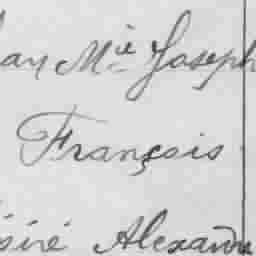 an Mie Joseph
François
siré Alexandre